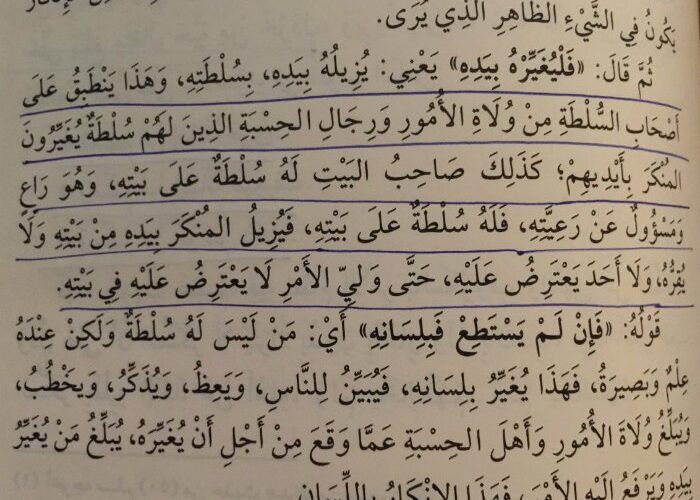 يَكُونُ فِي الشَّيْءِ الظَّاهِرِ الَّذِي يُرَى.
ثُمَّ قَالَ: «فَلْيُغَيِّرْهُ بِيَدِهِ» يَعْنِي: يُزِيلُهُ بِيَدِهِ، بِسُلْطَتِهِ، وَهَذَا يَنْطَبِقُ عَلَى
أَصْحَابِ السُّلْطَةِ مِنْ وُلَاةِ الأُمُورِ وَرِجَالِ الحِسْبَةِ الَّذِينَ لَهُمْ سُلْطَةٌ يُغَيِّرُونَ
المُنْكَرَ بِأَيْدِيهِمْ؛ كَذَلِكَ صَاحِبُ البَيْتِ لَهُ سُلْطَةٌ عَلَى بَيْتِهِ، وَهُوَ رَاعٍ
وَمَسْؤُولٌ عَنْ رَعِيَّتِهِ، فَلَهُ سُلْطَةٌ عَلَى بَيْتِهِ، فَيُزِيلُ المُنْكَرَ بِيَدِهِ مِنْ بَيْتِهِ وَلَا
يُقِرُّهُ، وَلَا أَحَدَ يَعْتَرِضُ عَلَيْهِ، حَتَّى وَلِيِّ الأَمْرِ لَا يَعْتَرِضُ عَلَيْهِ فِي بَيْتِهِ.
قَوْلُهُ: «فَإِنْ لَمْ يَسْتَطِعْ فَبِلِسَانِهِ» أَيْ: مَنْ لَيْسَ لَهُ سُلْطَةٌ وَلَكِنْ عِنْدَهُ
عِلْمٌ وَبَصِيرَةٌ، فَهَذَا يُغَيِّرُ بِلِسَانِهِ، فَيُبَيِّنُ لِلنَّاسِ، وَيَعِظُ، وَيُذَكِّرُ، وَيَخْطُبُ،
وَيُبَلِّغُ وُلَاةَ الأُمُورِ وَأَهْلَ الحِسْبَةِ عَمَّا وَقَعَ مِنْ أَجْلِ أَنْ يُغَيِّرَهُ، يُبَلِّغُ مَنْ يُغَيِّرُ
بِيَدِهِ وَيَرْفَعُ إِلَيْهِ الأَمْرَ، فَهَذَا الإِنْكَارُ بِاللِّسَانِ